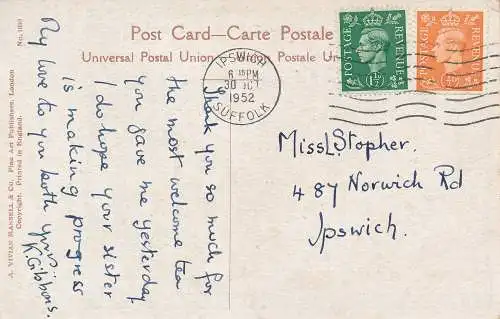 Post Card—Carte Postale
Universal Postal Union Union Postale Un
No. 1080
A. VIVIAN MANSELL & Co. Fine Art Publishers, London
Copyright. Printed in England.
IPSWICH
6 15 PM
30
1952
SUFFOLK
POSTAGE
REVENUE
1½D
POSTAGE
REVENUE
½D
Thank you so much for
the most welcome tea
you gave me yesterday
do hope your sister
is making progress
My love to you both yrs.
K. Gibbons.
Miss L. Stopher.
487 Norwich Rd
Ipswich.